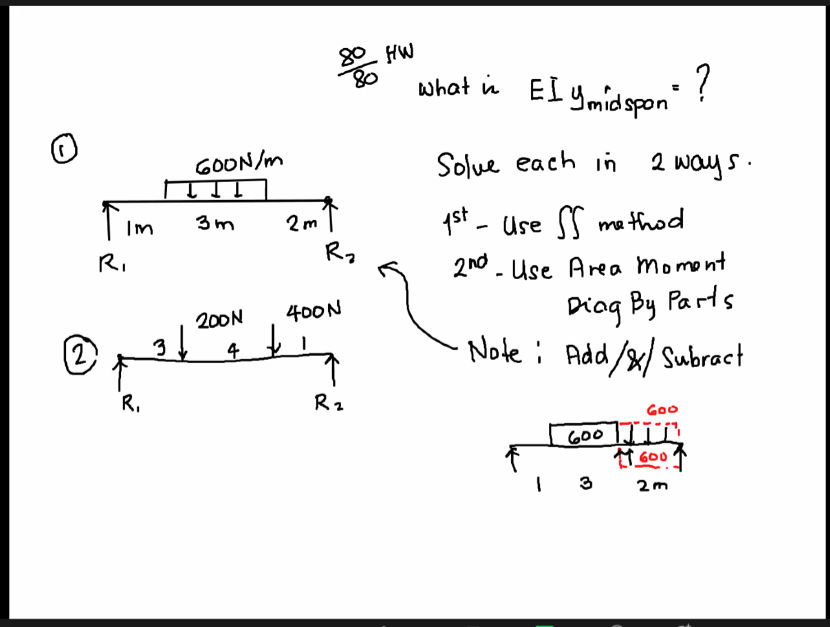 80/80 HW
What is EI y midspan = ?
1
600N/m
1m 3m 2m
R1 R2
Solve each in 2 ways.
1st - Use ∫∫ method
2nd - Use Area Moment
Diag By Parts
Note : Add/&/Subtract
2
200N 400N
3 4 1
R1 R2
600
600
600
1 3 2m